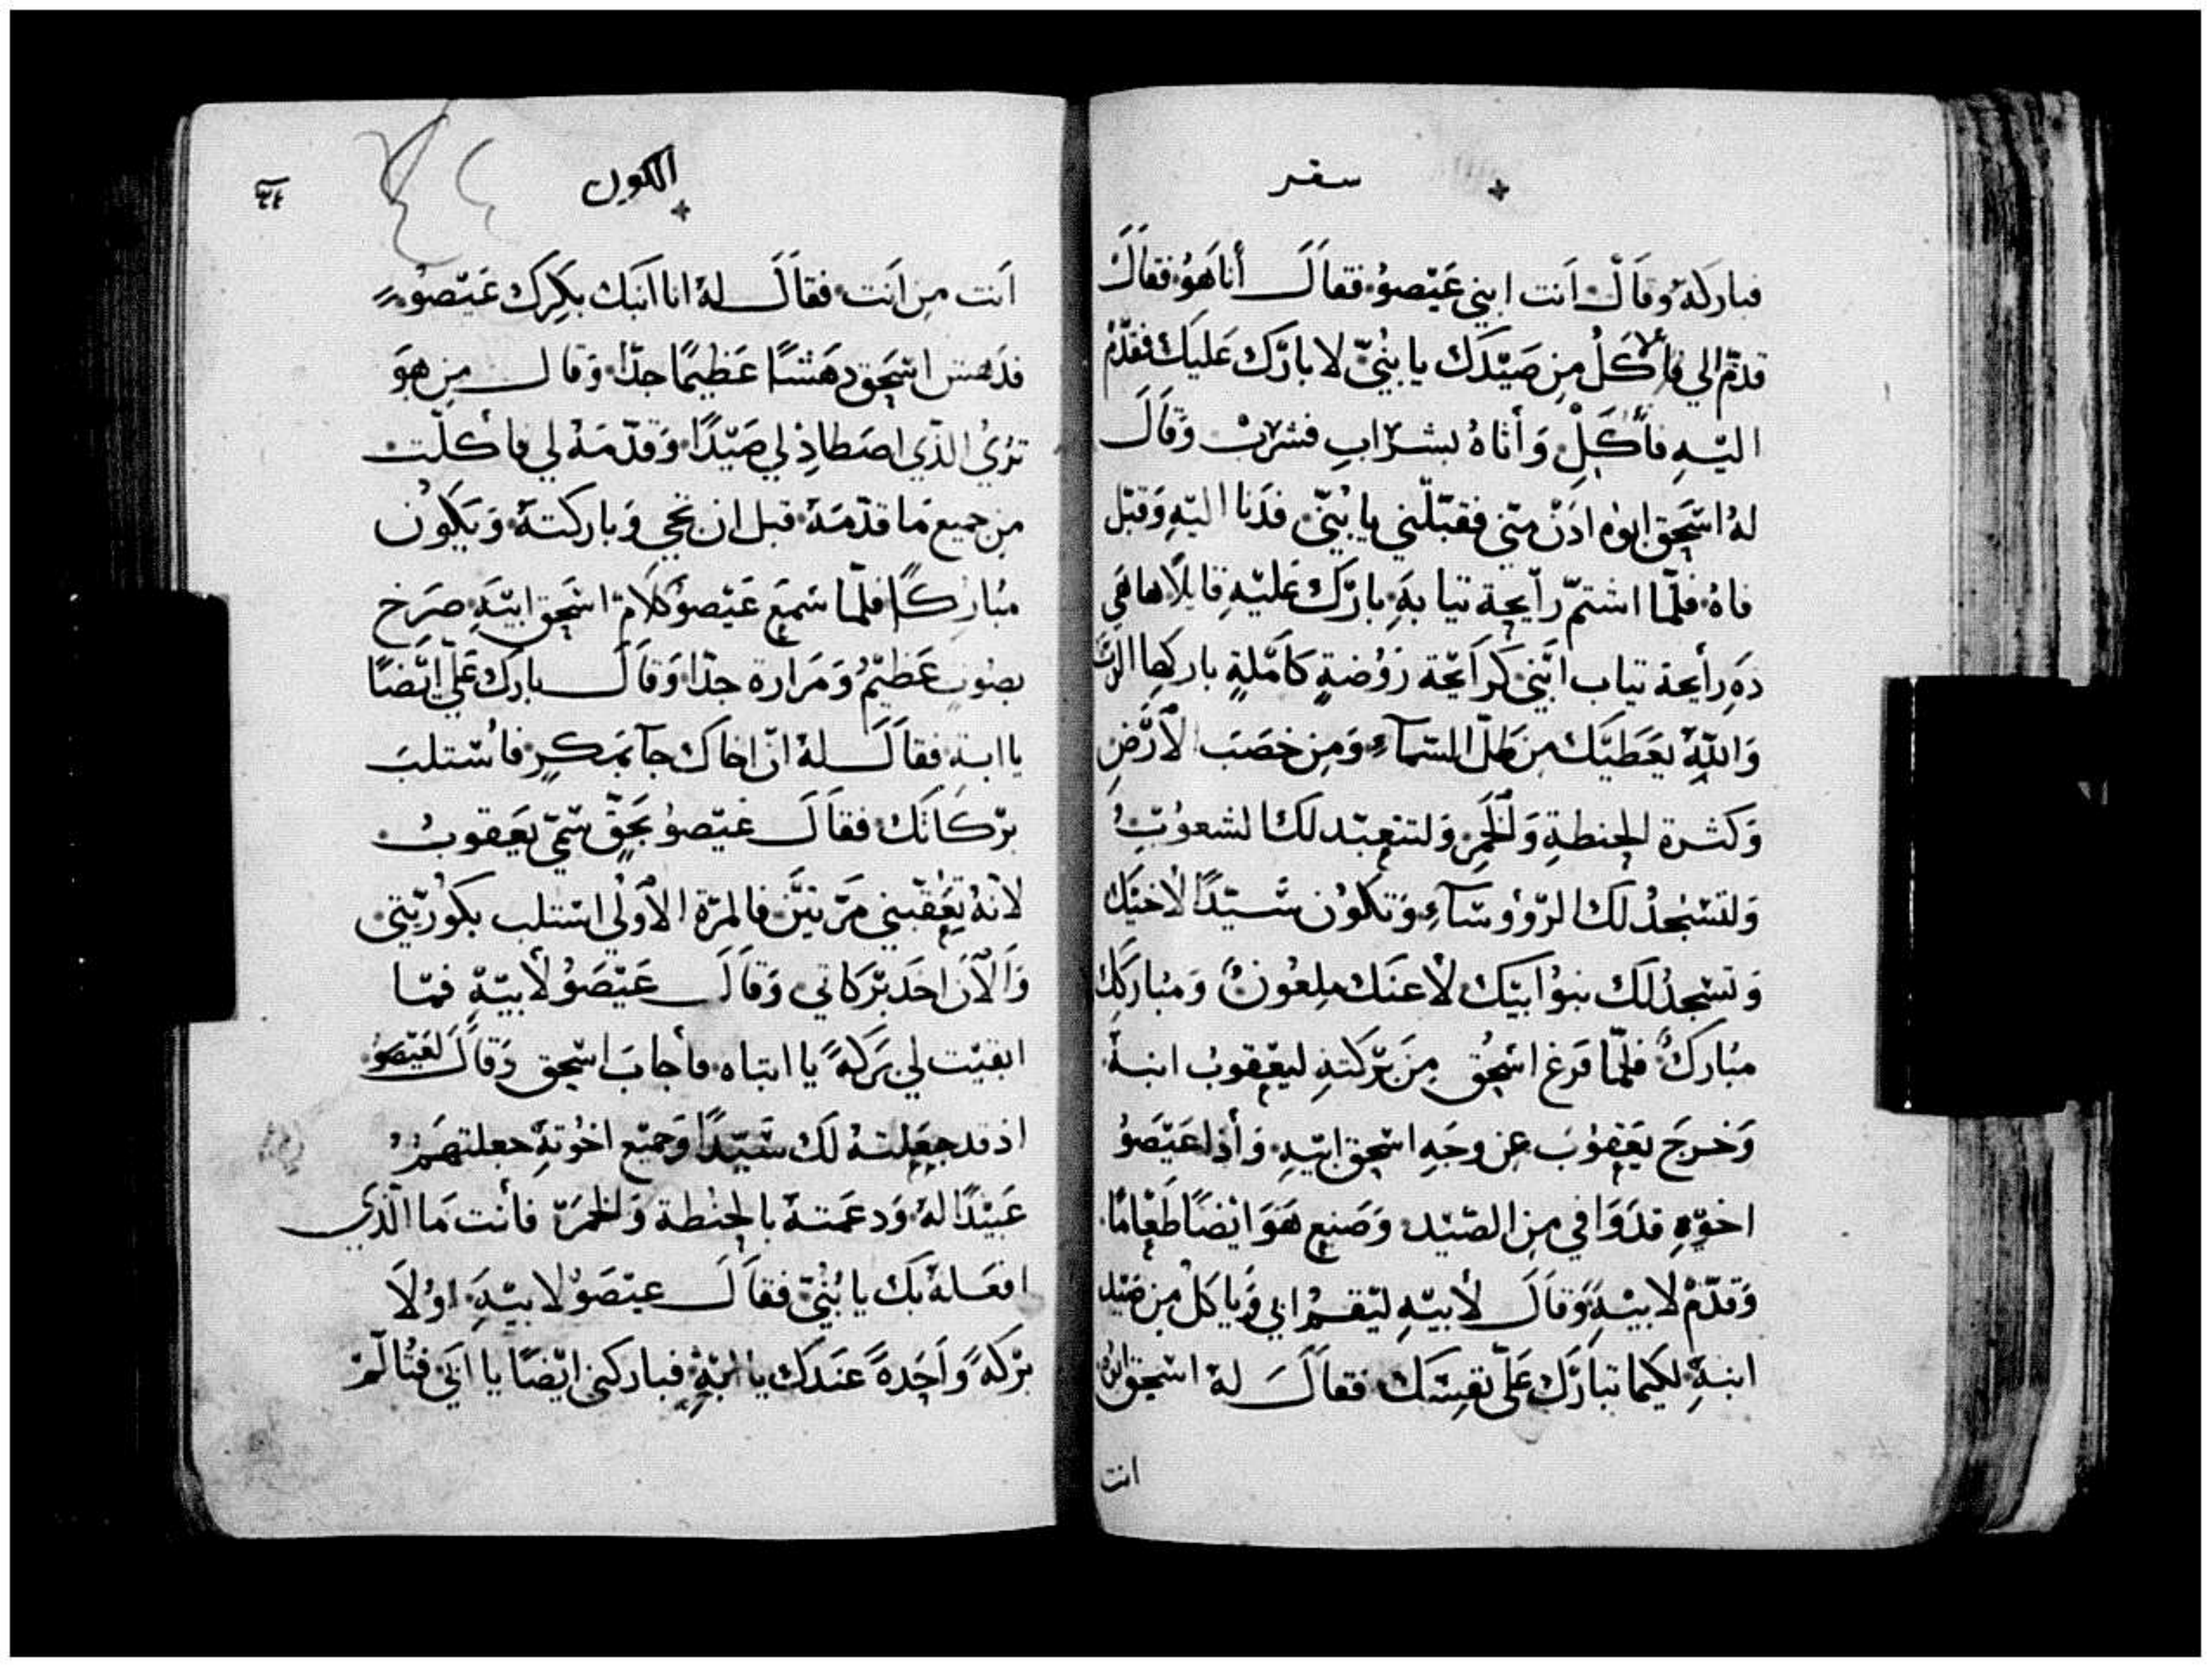 سفر
فباركه وقال انت ابني عيصو فقال أنا هو فقال
قدّم الي فأكل من صيدك يا بنيّ لابارك عليك فقدّم
اليه فأكل وأتاه بشراب فشرب وقال
له اسحق ابوه ادن منّي فقبّلني يا بنيّ فدنا اليه وقبّل
فاه فلمّا اشتمّ رايحة تيابه بارك عليه قايلًا ها هي
ده رأيحة تياب ابني كرايحة روضةٍ كاملةٍ باركها الرب
والله يعطيك من طلّ السمآء ومن خصب الأرض
وكثرة الحنطة والخمر ولتتعبد لك الشعوب
ولتسجد لك الروؤسآء وتكون سيّدًا لأخيك
وتسجد لك بنوا ابيك لأعنك ملعون ومباركك
مبارك فلمّا فرغ اسحق من بركته ليعقوب ابنه
وخرج يعقوب عن وجه اسحق ابيه وأذا عيصو
اخوه قد وافي من الصيد وصنع هو ايضًا طعامًا
وقدّم لابيه وقال لأبيه ليقم ابي وياكل من صيد
ابنه لكيما تبارك علّي نفسك فقال له اسحق ابوه
انت
الكون
٣٤
انت من انت فقال له انا ابنك بكرك عيصو
فدهش اسحق دهشًا عظيمًا جدّا وقال من هو
تري الذي اصطاد لي صيدًا وقدّمه لي فأكلت
من جميع ما قدّمه قبل ان تجي وباركته ويكون
مباركًا فلمّا سمع عيصو كلام اسحق ابيه صرخ
بصوت عظيم ومرارة جدّا وقال بارك علي ايضًا
يا ابة فقال له انّ اخاك جآ بمكر فاستلب
بركاتك فقال عيصو بحقّ سمّي يعقوب
لانه تعقبني مرّتين فالمرّة الأولي استلب بكوريّتي
والأن اخد بركاتي وقال عيصو لأبيه فما
ابقيت لي بركةً يا ابتاه فأجاب اسحق وقال لعيصو
اذ قد جعلته لك سيّدًا وجميع اخوته جعلتهم
عبيدًا له ودعمته بالحنطة والخمر فأنت ما الذي
افعله بك يا بنيّ فقال عيصو لابيه اولا
بركةً واحدةً عندك يا ابة فباركني ايضًا يا ابي فتالم